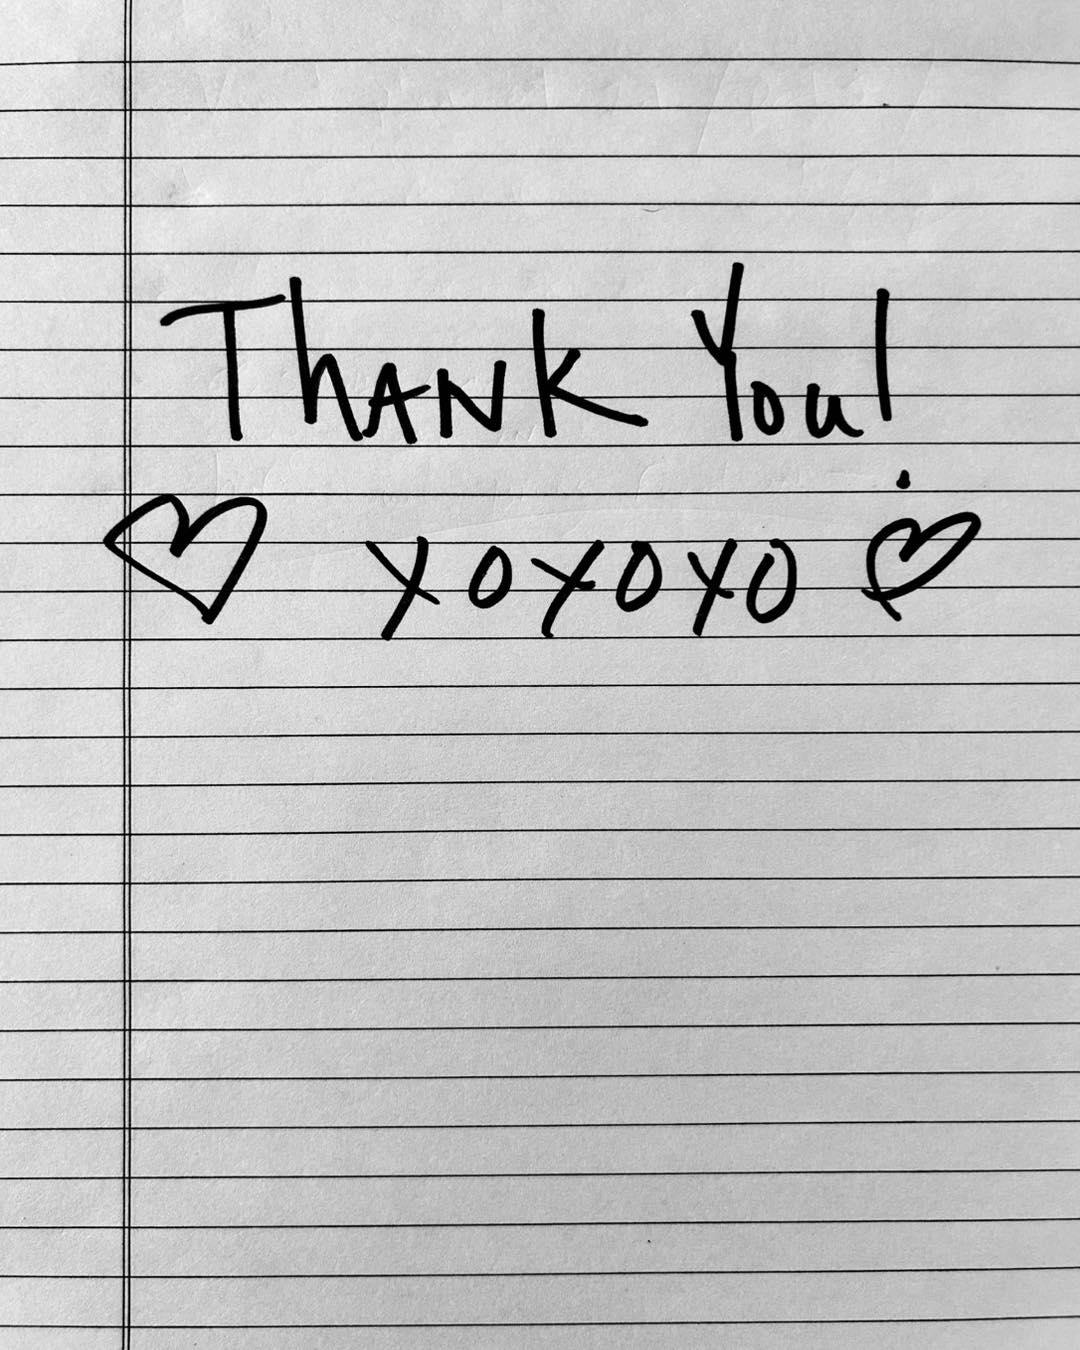 Thank You!
♡ xoxoxo ♡